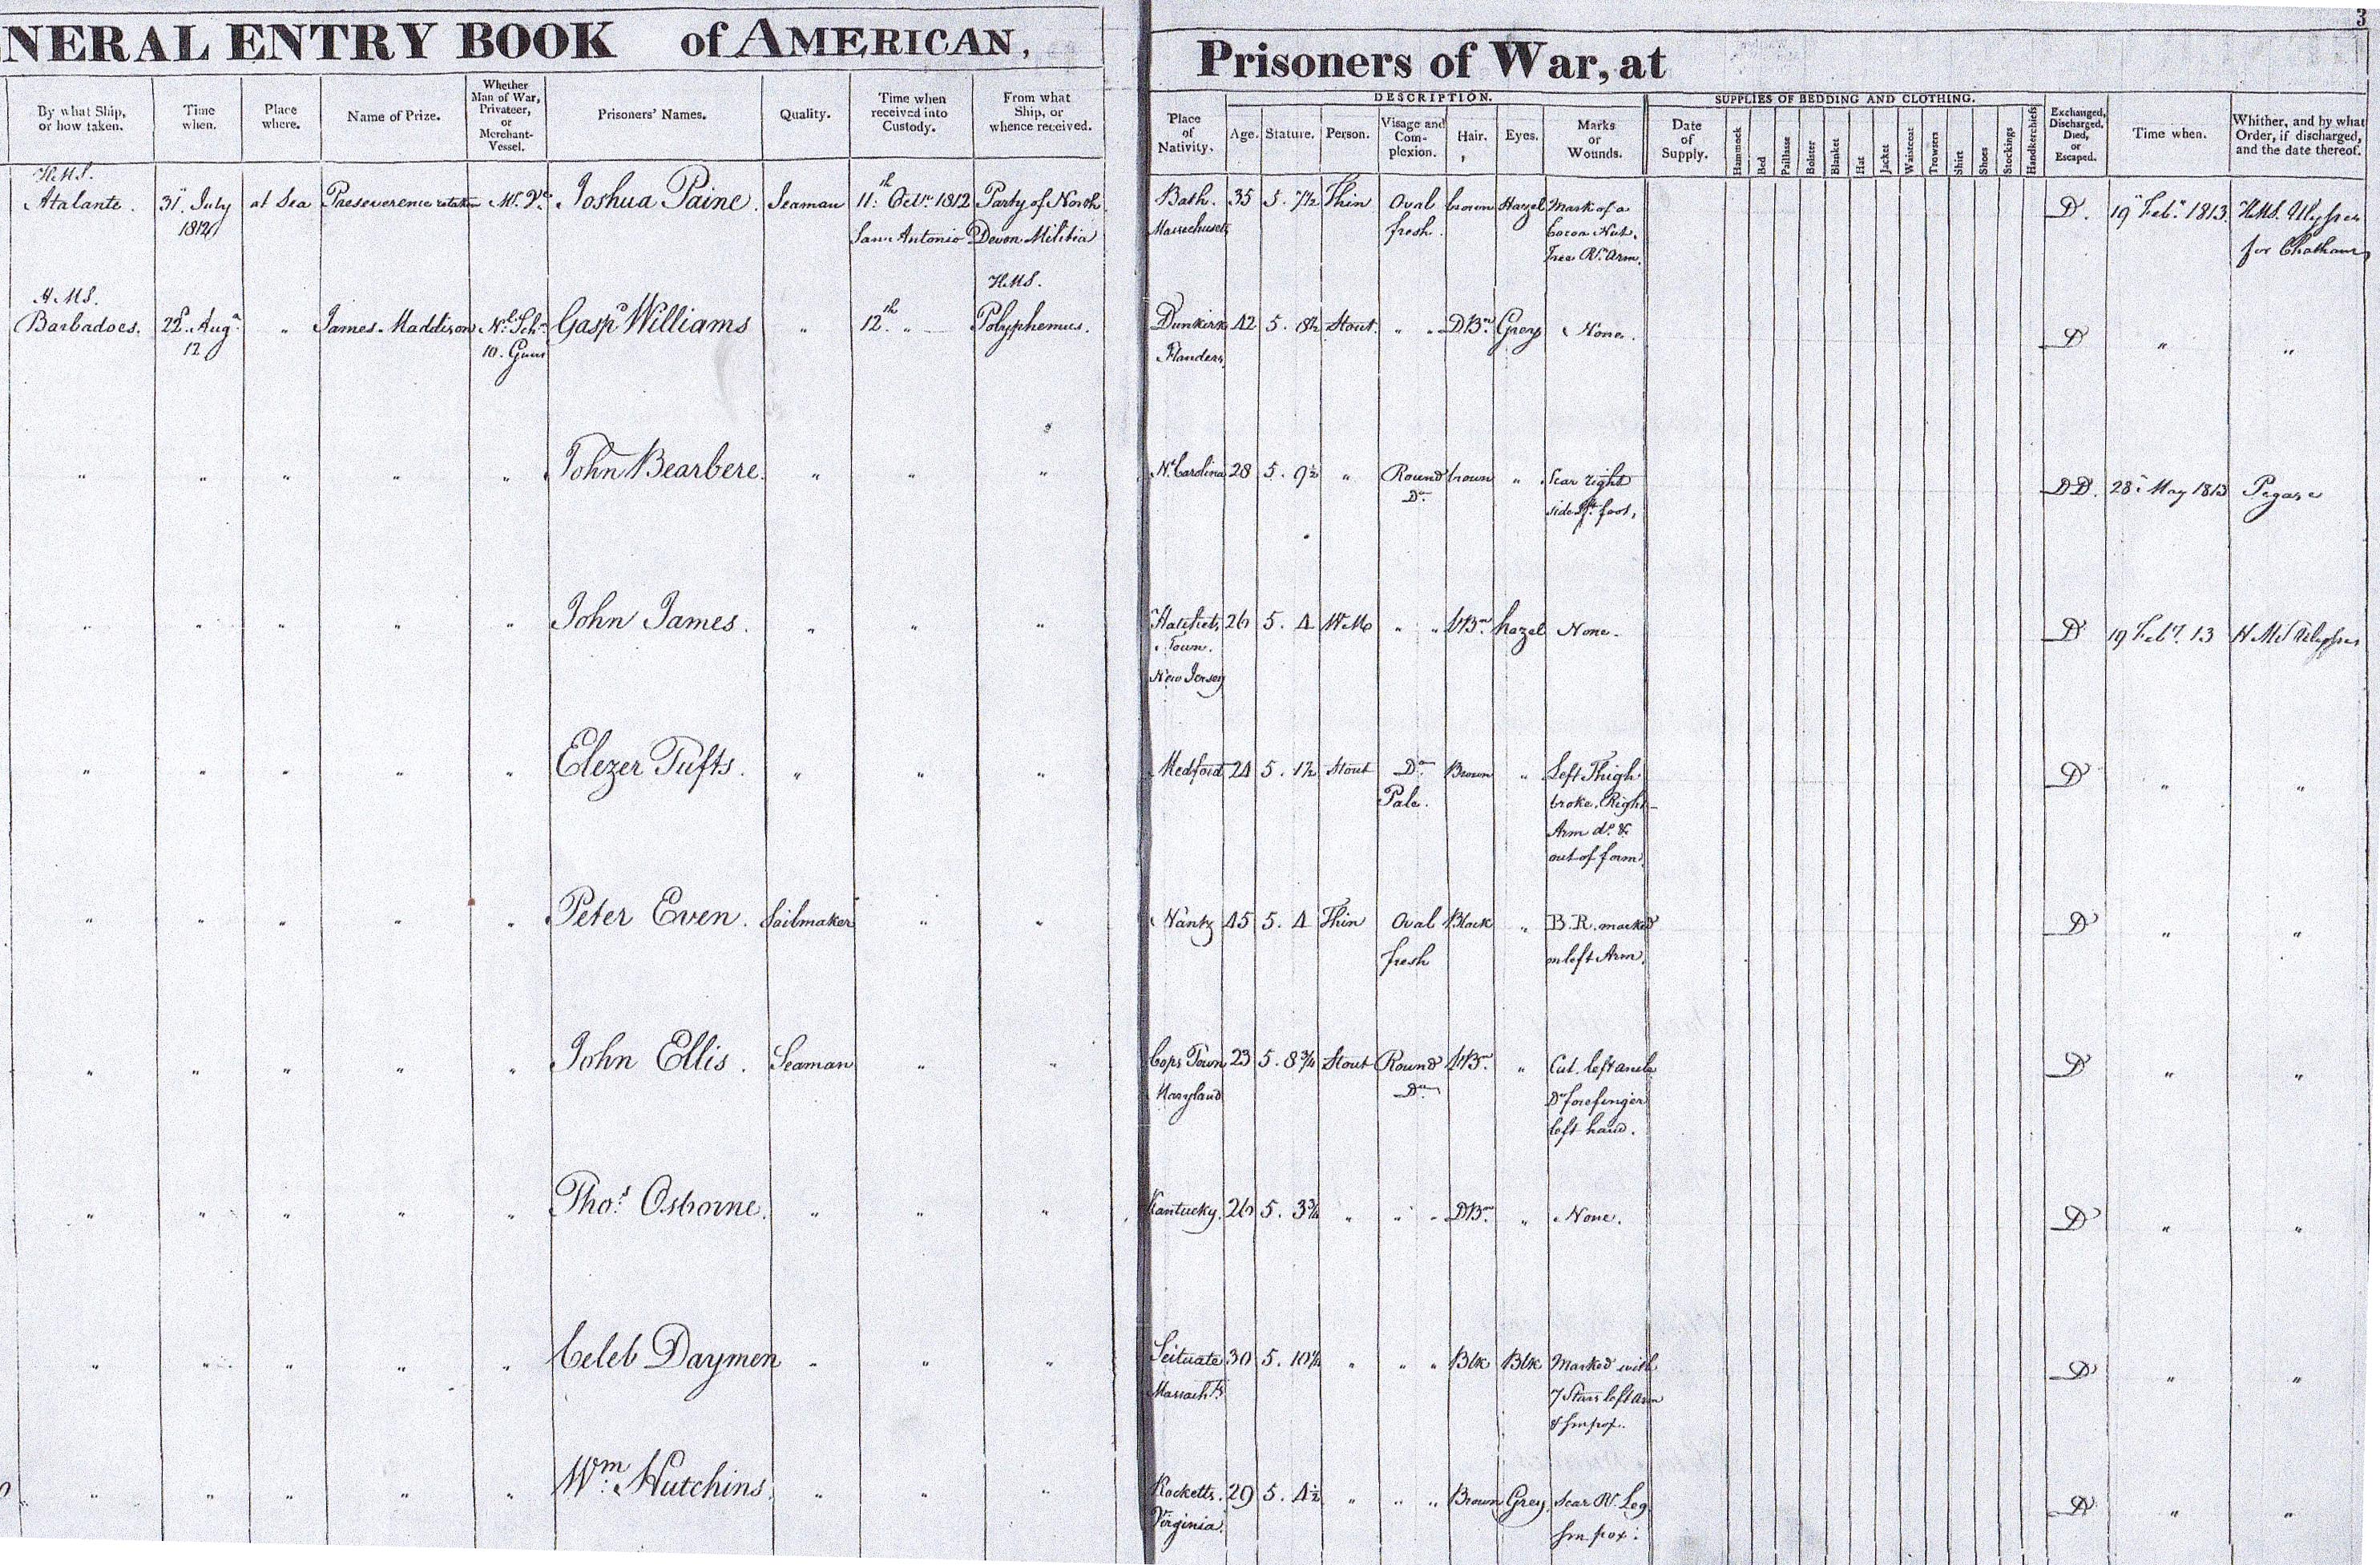 NERAL ENTRY BOOK of AMERICAN,
Prisoners of War, at
3
By what Ship, or how taken.
Time when.
Place where.
Name of Prize.
Whether Man of War, Privateer, or Merchant-Vessel.
Prisoners' Names.
Quality.
Time when received into Custody.
From what Ship, or whence received.
Place of Nativity.
DESCRIPTION.
Age.
Stature.
Person.
Visage and Com-plexion.
Hair.
Eyes.
Marks or Wounds.
Date of Supply.
SUPPLIES OF BEDDING AND CLOTHING.
Hammock
Bed
Paillasse
Bolster
Blanket
Hat
Jacket
Waistcoat
Trowsers
Shirt
Shoes
Stockings
Handkerchiefs
Exchanged, Discharged, Died, or Escaped.
Time when.
Whither, and by what Order, if discharged, and the date thereof.
H.M.S.
Atalante. 31st July at Sea Preseverence retaken Joshua Paine. Seaman 11th Octr 1812 Party of North
1812 Antonio Devon Militia
Bath. 35 5. 7½ Thin Oval brown Hazel Mark of a D. 19" Feby 1813 HMS. Ulysses
Massachusets fresh. Cocoa Nut for Chatham
Tree Rt. Arm.
H.M.S. H.M.S.
Barbadoes. 22d Augt " James Maddison Nl Schr Gaspr Williams " 12th " Polyphemus.
12 10. Guns
Dunkirk 42 5. 8½ Stout. " " D.Bn. Grey None. D " "
Flanders
" " " " " John Bearbere. " " "
No Carolina 28 5. 9½ " Round brown " Scar right DD. 28" May 1813 Pegase
Do. side foot,
" " " " " John James. " " "
Town. 26 5. 4 " " hazel None. D 19 Feby. 13 HMS Ulysses
New Jersey
" " " " " Elezer Tufts. " " "
Medford 24 5. 1½ Stout Do. Brown " Left Thigh D " "
Pale. broke. Right
Arm do. &
out of form.
" " " " " Peter Even. Sailmaker " "
Nantz 45 5. 4 Thin Oval Black " B.R. marked D " "
fresh on left Arm.
" " " " " John Ellis. Seaman " "
Town 23 5. 8¾ Stout Round " Cut. left ancle D " "
Maryland Do. Do forefinger
left hand.
" " " " " Thos. Osborne. " " "
Kantucky. 26 5. 3¾ " " " DBn. " None. D " "
" " " " " Celeb Daymen " " "
Scituate 30 5. " " " Blk Blk Marked with D " "
Massachts. 7 Stars left Arm
& Smpox.
" " " " " Wm. Hutchins. " " "
Rocketts. 29 5. 4½ " " " Brown Grey. Scar Rt. Leg D " "
Virginia. Sm pox.